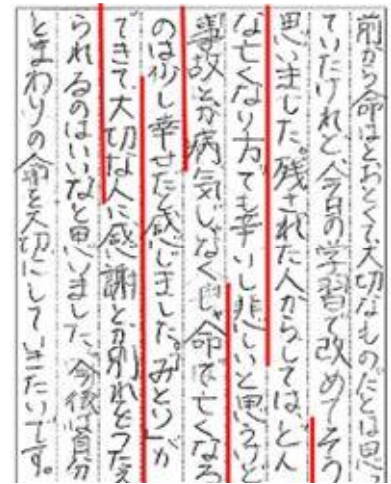 前から命はとおとくて大切なものだとは思っ
ていたけれど、今日の学習で改めてそう
思いました。残された人からしては、どん
な亡くなり方でも辛いし悲しいと思うけど
事故とか病気じゃなく、命で亡くなる
のは少し幸せだと感じました。「みとり」が
できて、大切な人に感謝とか別れをつたえ
られるのはいいなと思いました。今後は自分
とまわりの命を大切にしていきたいです。